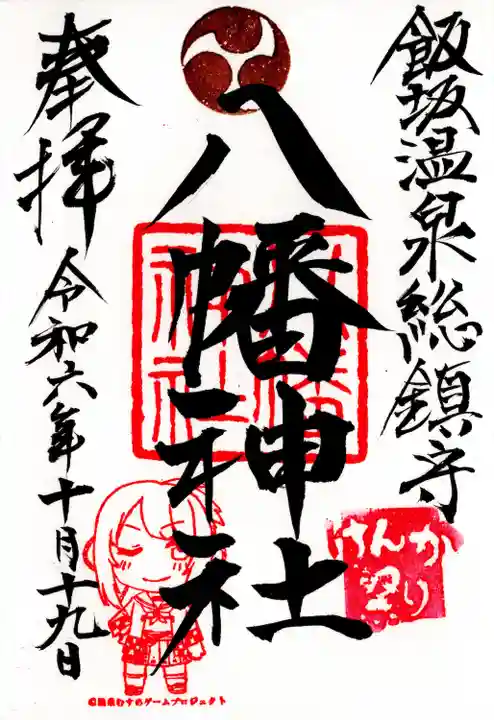 飯坂温泉総鎮守
八幡神社
八幡神社
けんか
祭り
奉拝
令和六年十月十九日
©温泉むすめゲームプロジェクト